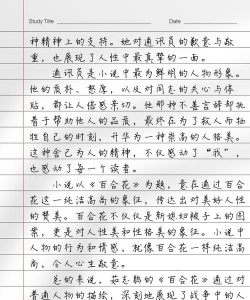 Study Title
Date
种精神上的支持。她对通讯员的歉意与敬
重，也展现了人性中最真挚的一面。
通讯员是小说中最为鲜明的人物形象。
他的质朴、憨厚，以及对同志的关心与体
贴，都让人倍感亲切。他那种不善言辞却执
着于帮助他人的品质，最终在为了救人而牺
牲自己的时刻，升华为一种崇高的人格美。
这种舍己为人的精神，不仅感动了“我”，
也感动了每一个读者。
小说以《百合花》为题，意在通过百合
花这一纯洁高尚的象征，传达出对美好人性
的赞美。百合花不仅仅是新媳妇被子上的图
案，更是对人性美和性格美的象征。小说中
人物的行为和情感，就像百合花一样纯洁高
尚，令人心生敬意。
总的来说，茹志鹃的《百合花》通过对
普通人物的描绘，深刻地展现了战争中的人